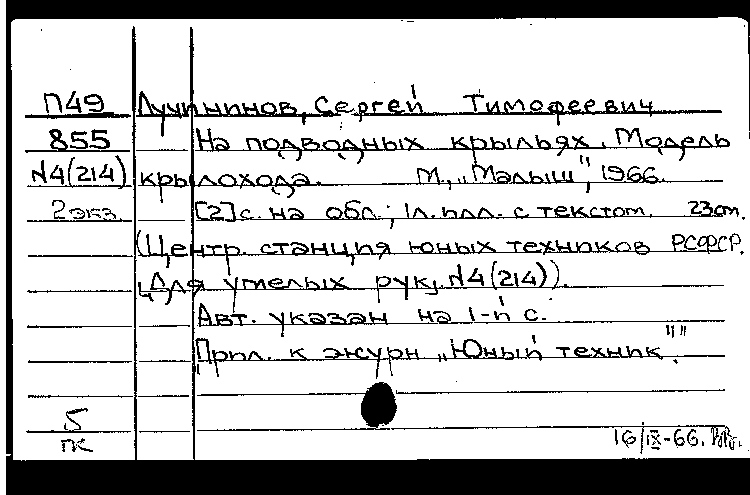 П49 Лучининов, Сергей Тимофеевич
855 На подводных крыльях. Модель
N4(214) крылохода. М., „Малыш", 1966.
2 экз. [2] с. на обл.; 1 л. илл. с текстом. 23 см.
(Центр. станция юных техников РСФСР.
„Для умелых рук, N4(214)).
Авт. указан на 1-й с.
Прил. к журн „Юный техник".
5
пк
16/IX-66.